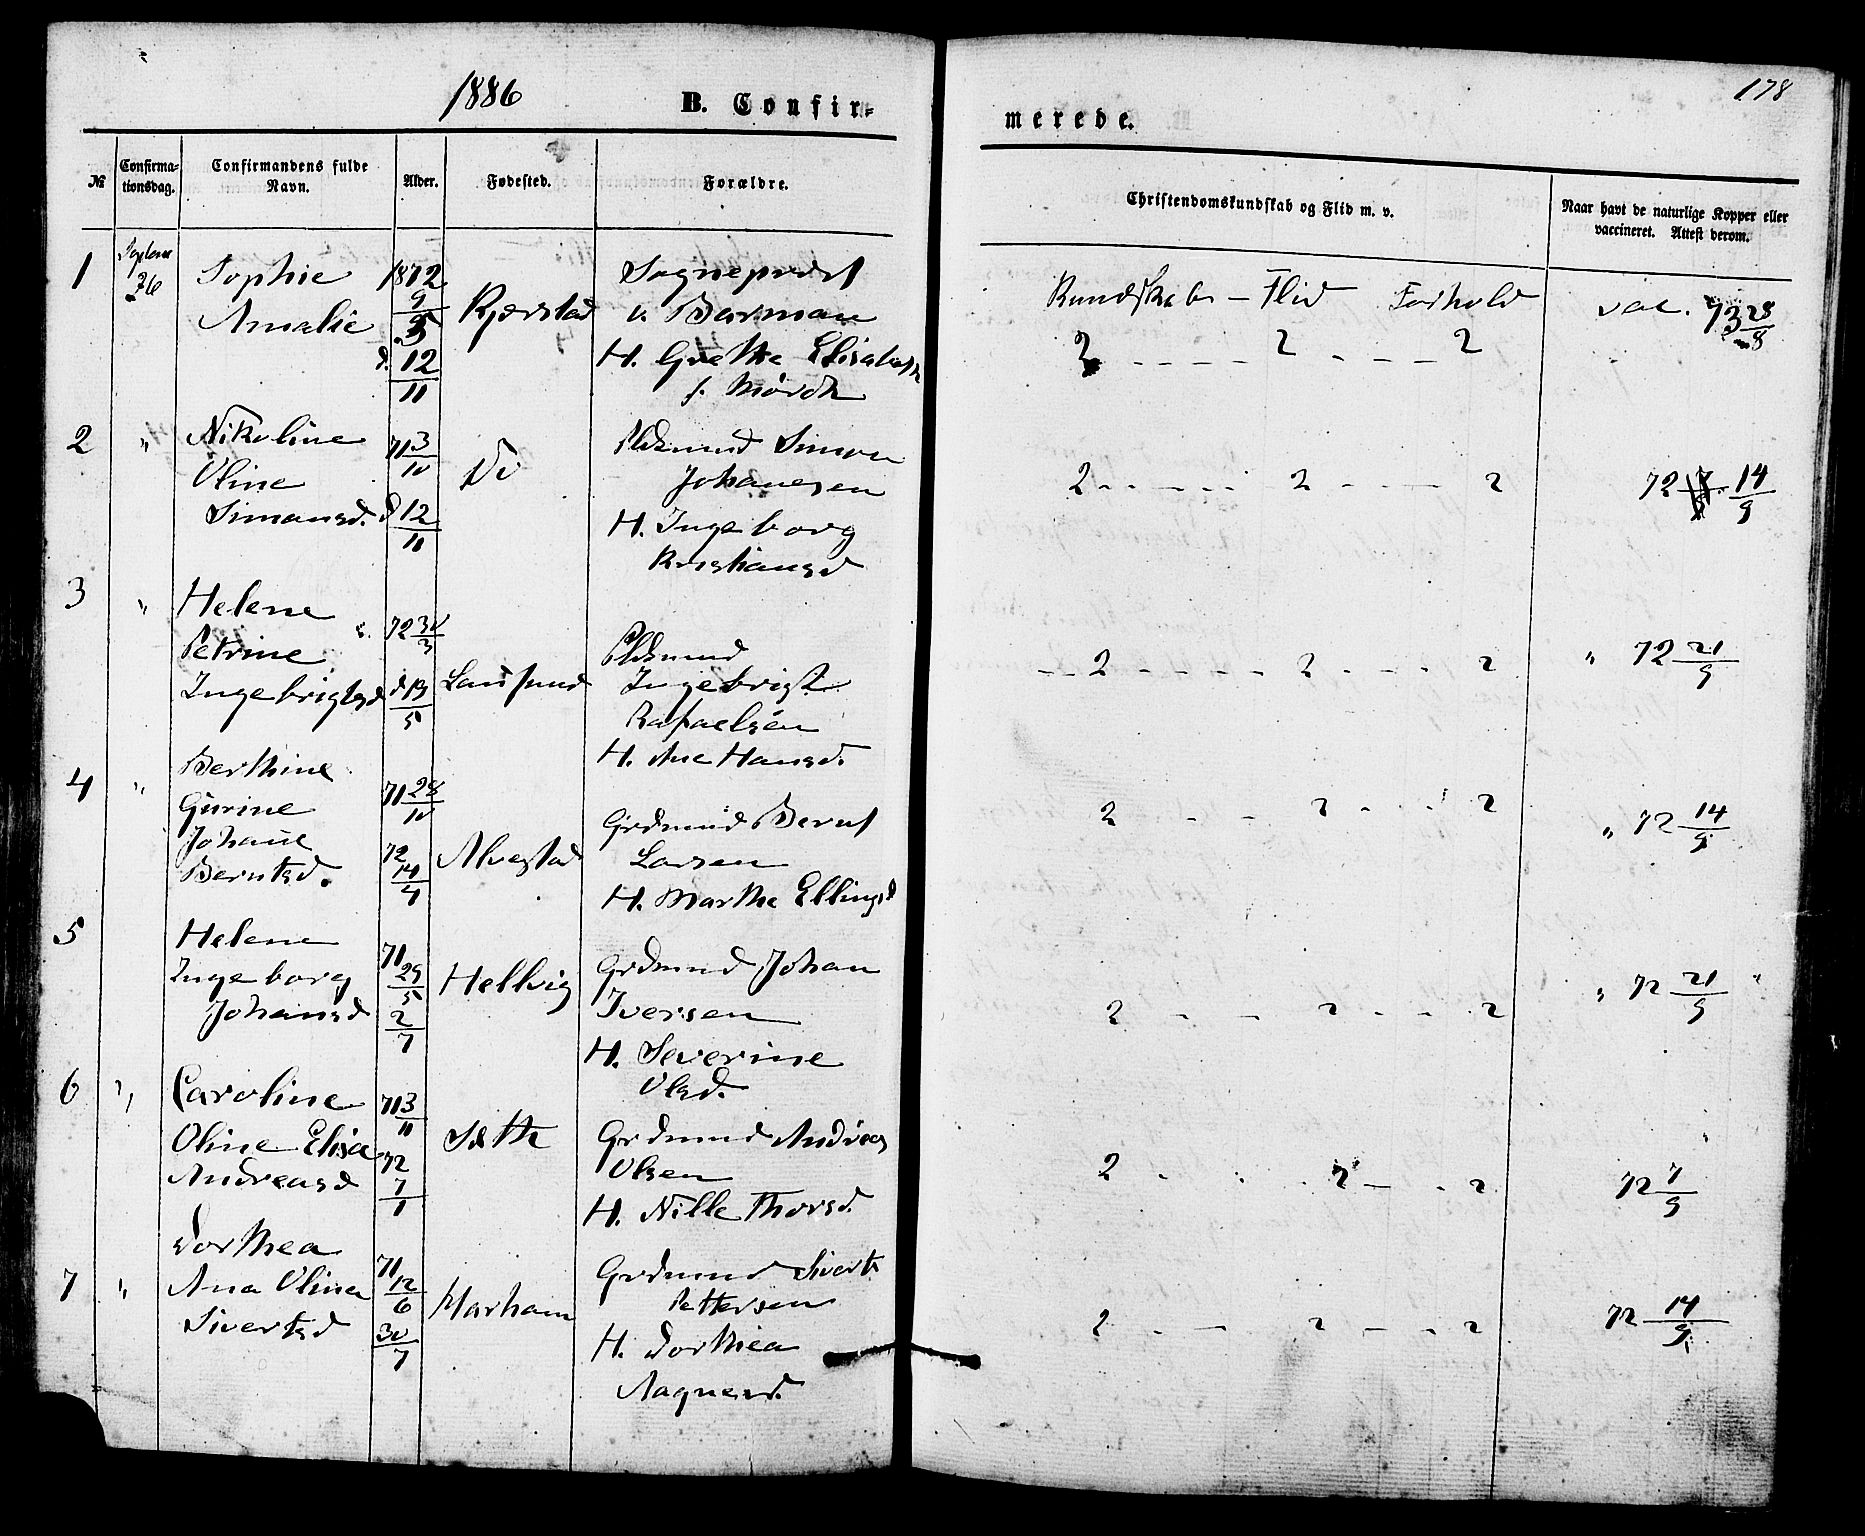 1886
B. Confir-
merede.
178
№
Confirma-
tionsdag.
Confirmandens fulde
Navn.
Alder.
Fødested.
Forældre.
Christendomskundskab og Flid m. v.
Naar havt de naturlige Kopper eller
vaccineret. Attest derom.
1
26
Sophie
Amalie
1872
9
5
d. 12
11
Kjerstad
Sogneprest
v. Barman
H. Grethe Elisabeth
f. Mørch
Kundskabs - Flid Forhold
2 - - - - 2 - - - 2
vac. 73 28
8
2
"
Nikoline
Oline
Simonsd.
71 3
10
d 12
11
Do
Pldsmand Simon
Johanesen
H. Ingeborg
Kristiansd
2 - - - - 2 - - - 2
72 14
9
3
"
Helene
Petrine
Ingebrigtsd
72 30
3
d 19
5
Pldsmand
Ingebrigt
Rafaelsen
H. Ane Hansd.
- - 2 - - - - 2 - - - 2
" 72 21
9
4
"
Berthine
Gurine
Johane
Berntsd.
71 28
10
72
14
4
Alvestad
Grdmand Bernt
Larsen
H. Marthe Ellingsd
2 - - 2 - - 2
" 72 14
9
5
Helene
Ingeborg
Johansd
71
29
5
2
7
Hellvig
Grdmand Johan
Iversen
H. Severine
Olsd.
2 - - 2 - - 2
" 72 21 "
9
6
"
Caroline
Oline Elisa
Andreasd
71 3
11
72
7
1
Sætte
Grdmand Andreas
Olsen
H. Nille Thorsd.
2 - - 2 - - 2
72 7
9
7
"
Dorthea
Ana Olina
Sivertsd
71
12
6
30
7
Harham
Grdmand Sivert
Pettersen
H. Dorthea
Aagnesd.
2 - - 2 - - 2
72 14
9